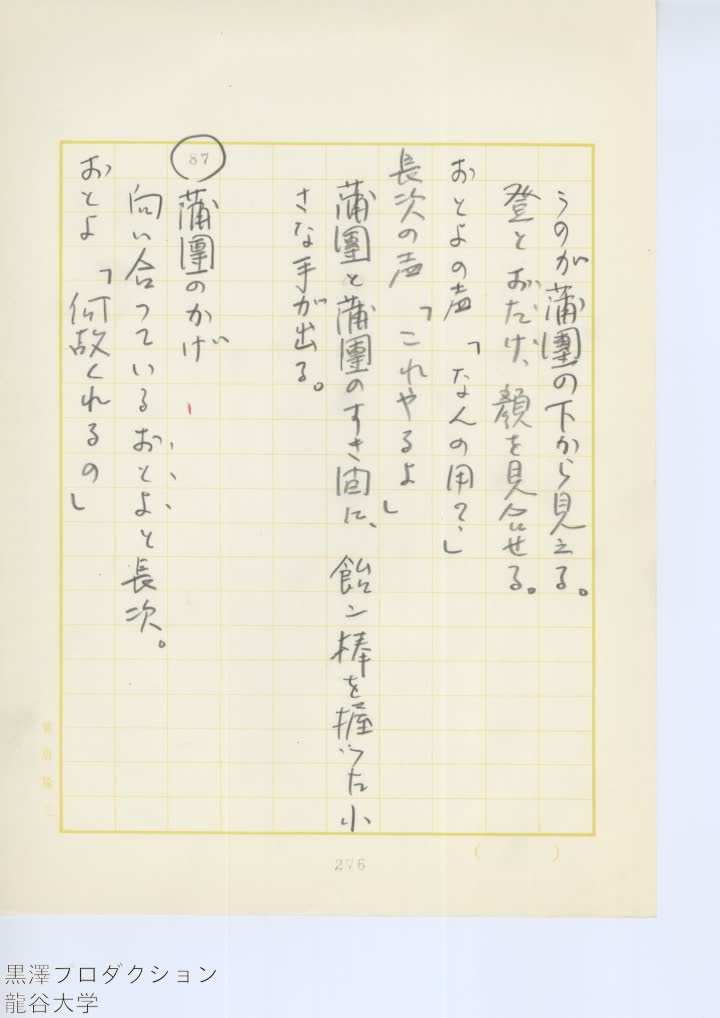 うのが蒲團の下から見える。
登とおだけ、顔を見合せる。
おとよの声「なんの用？」
長次の声「これやるよ」
蒲團と蒲團のすき間に、飴ン棒を握った小
さな手が出る。
87
蒲團のかげ
向い合っているおとよと長次。
おとよ「何故くれるの」
276
黒澤プロダクション
龍谷大学